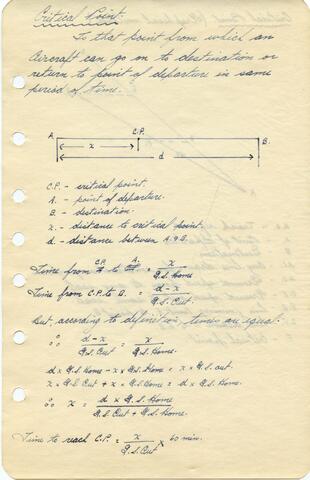 Critical Point:
Is that point from which an
Aircraft can go on to destination or
return to point of departure in same
period of time.
A. C.P. B.
x
d
C.P. - critical point.
A. - point of departure.
B. - destination.
x. - distance to critical point.
d. - distance between A & B.
Time from C.P. to A. = x / G.S. Home
Time from C.P. to B. = d - x / G.S. Out.
But, according to definition, times are equal.
∴ d - x / G.S. Out = x / G.S. Home.
d x G.S. Home - x x G.S. Home = x x G.S. out.
x x G.S. Out + x x G.S. Home = d x G.S. Home.
∴ x = d x G.S. Home / G.S. Out + G.S. Home.
Time to reach C.P. = x / G.S. Out x 60 min.